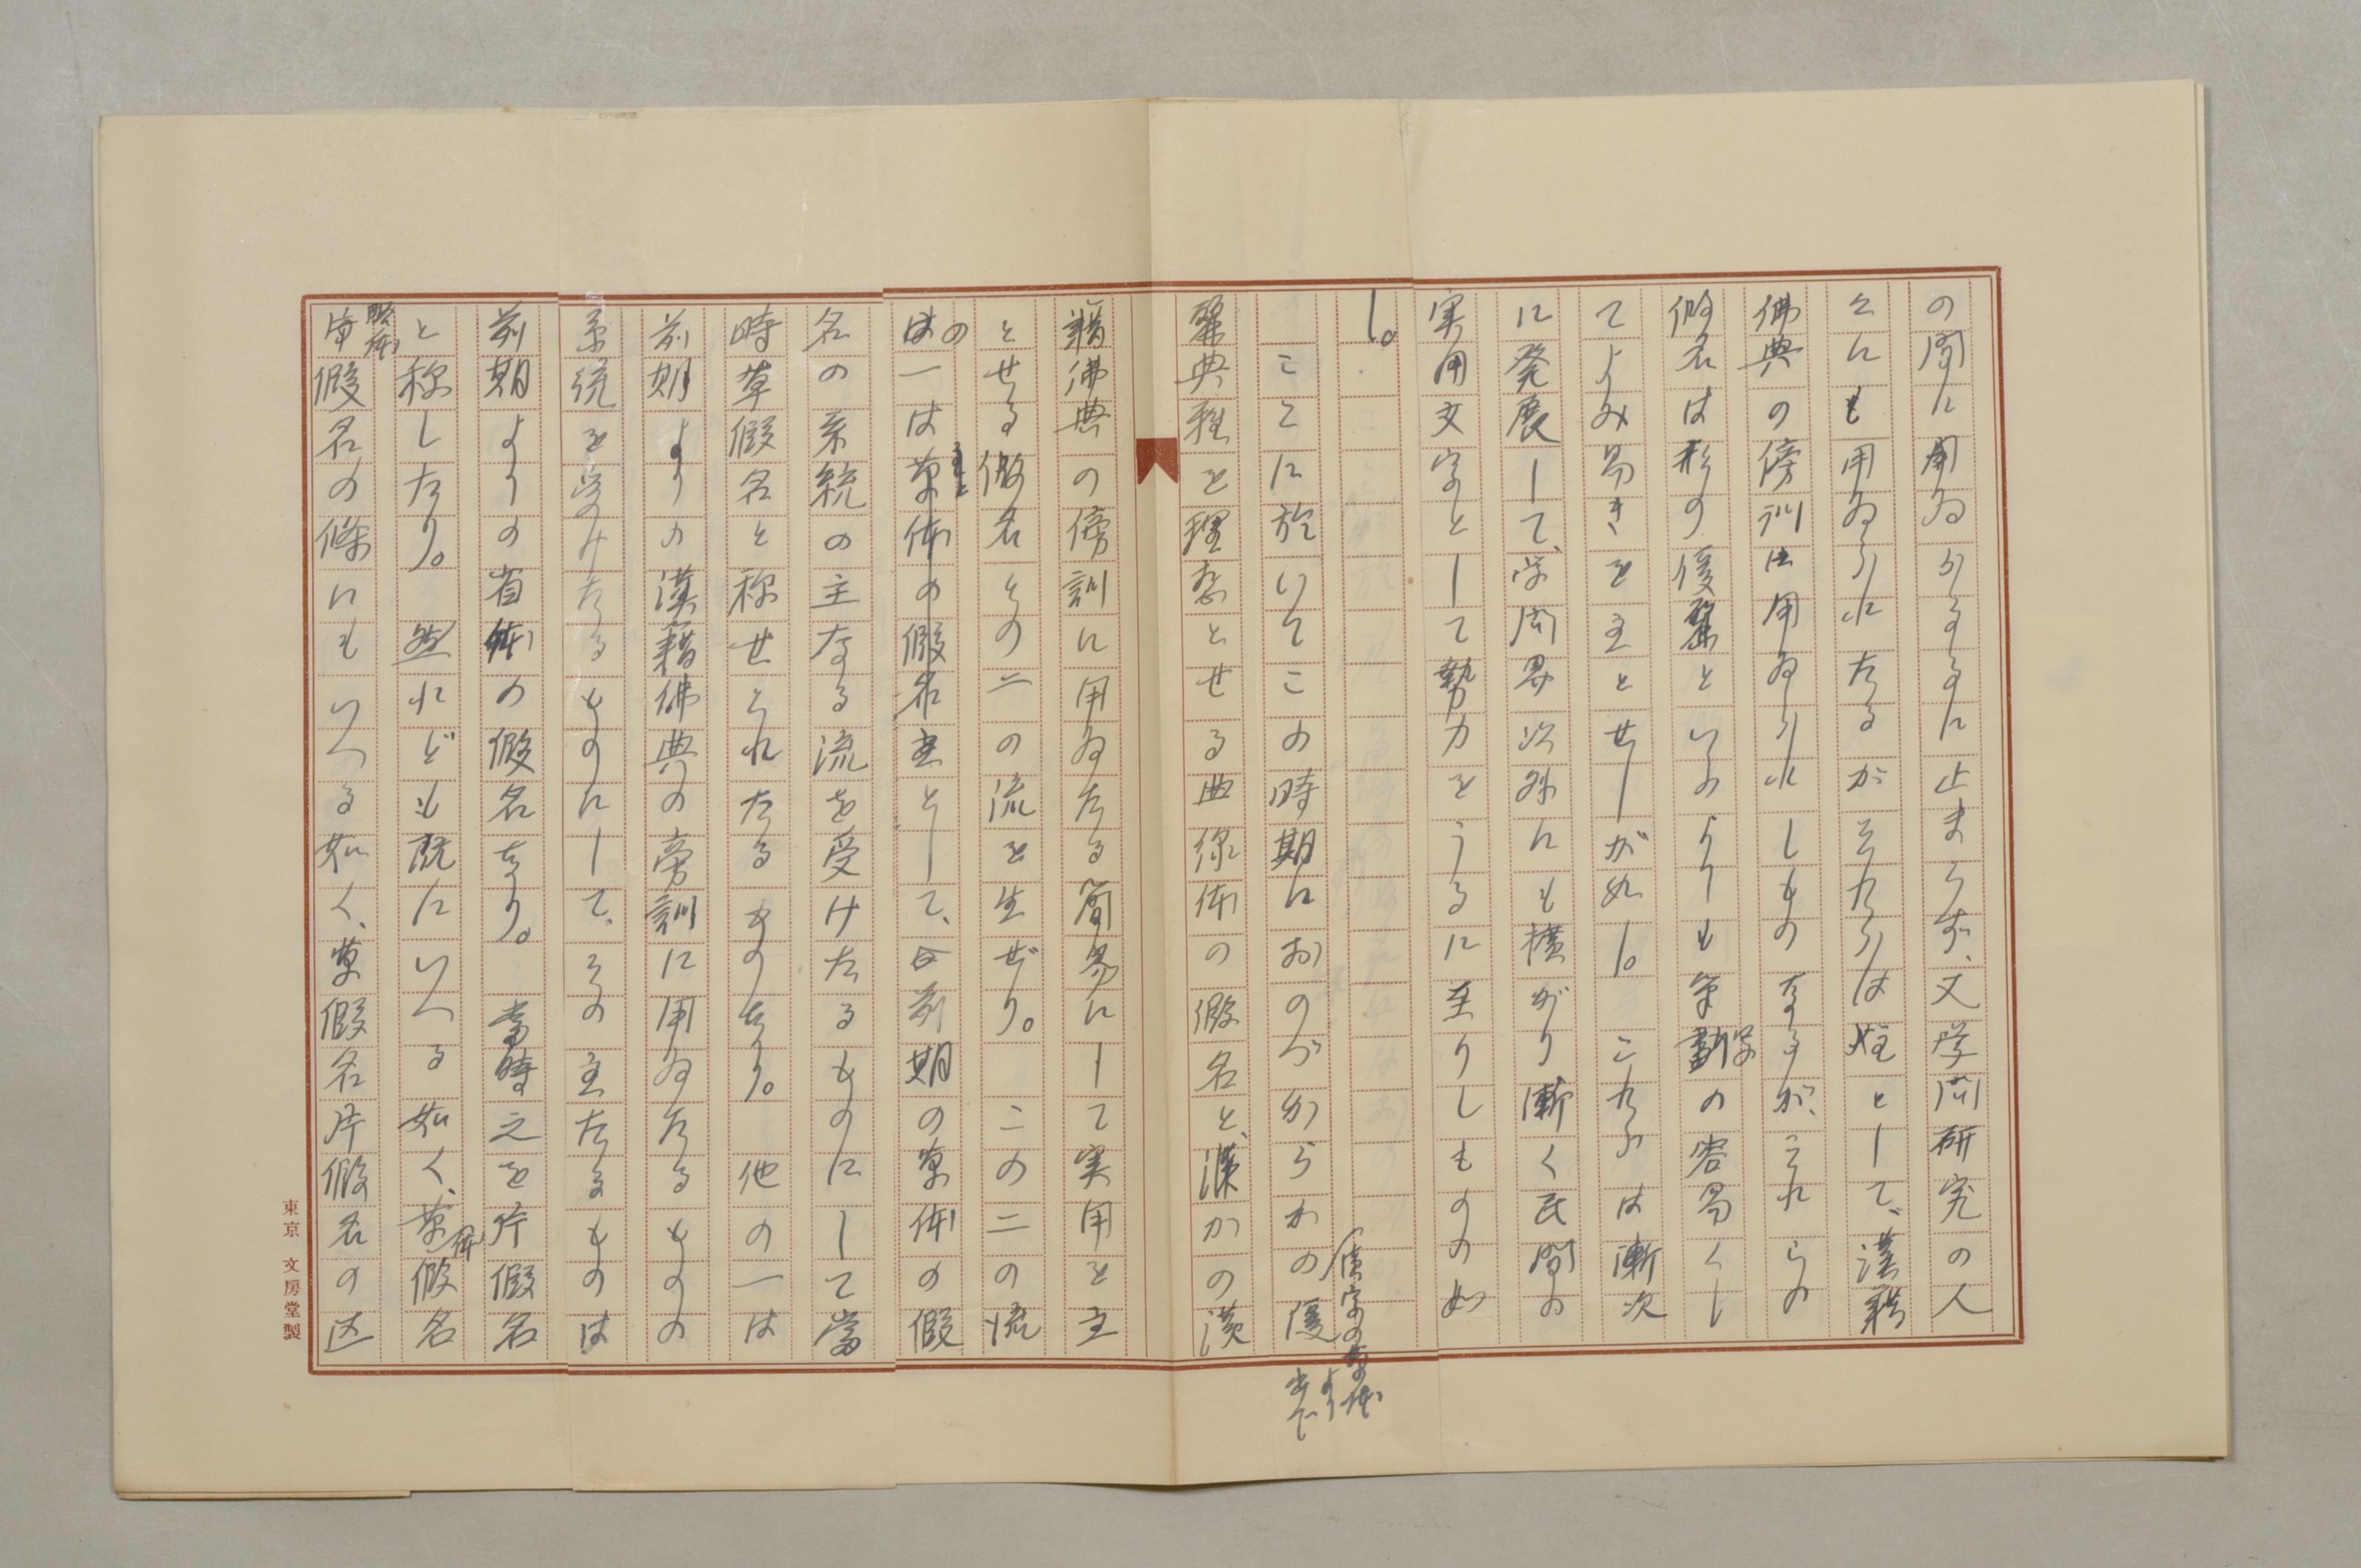 の間に用ゐらるゝに止まらず、文学問研究の人
々にも用ゐられたるがそれらは主として、漢籍
佛典の傍訓に用ゐられしものなるが、これらの
假名は形の優麗といふよりも字劃の容易くし
てよみ易きを主とせしが如し。これらは漸次
に発展して、学問界以外にも横がり漸く民間の
実用文字として勢力をうるに至りしものの如
し。
ここに於いてこの時期におのづからかの優
麗典雅を理想とせる曲線体の假名と、漢かの漢
漢字の草体
より
出で
籍佛典の傍訓に用ゐたる簡易にして実用を主
とせる假名との二の流を生ぜり。この二の流
の一は草体の假名主として、前期の草体の假
主と
名の系統の主なる流を受けたるものにして當
時草假名と称せられたるものなり。他の一は
前期よりの漢籍佛典の旁訓に用ゐたるものの
系統を受みたるものにして、その主たるものは
前期よりの省体の假名なり。當時之を片假名
と称したり。然れども既にいへる如く、草假名
体
略体
草假名の條にもいへる如く、草假名片假名の区
東京 文房堂製